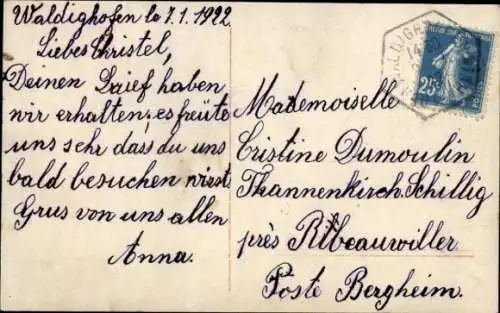 Waldighofen le 7.1.1922
Liebes Christel,
Deinen Brief haben
wir erhalten, es freute
uns sehr dass du uns
bald besuchen wirst
Grus von uns allen
Anna.
25c
Mademoiselle
Cristine Dumoulin
Thannenkirch. Schillig
près Ribeauwiller
Poste Bergheim.